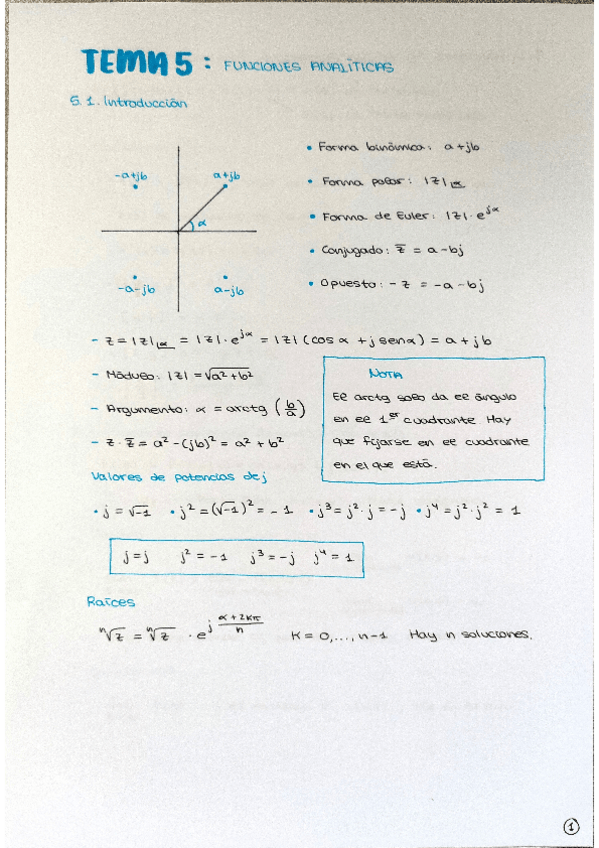 TEMA 5 : FUNCIONES ANALÍTICAS
5.1. Introducción
-a+jb
a+jb
α
-a-jb
a-jb
• Forma binómica: a+jb
• Forma polar: |z|∠α
• Forma de Euler: |z|·e^{jα}
• Conjugado: z̅ = a-bj
• Opuesto: -z = -a-bj
- z = |z|∠α = |z|·e^{jα} = |z|(cosα + j senα) = a+jb
- Módulo: |z| = √(a²+b²)
- Argumento: α = arctg (b/a)
- z·z̅ = a² - (jb)² = a² + b²
NOTA
El arctg solo da el ángulo
en el 1er cuadrante. Hay
que fijarse en el cuadrante
en el que está.
Valores de potencias de j
• j = √-1 • j² = (√-1)² = -1 • j³ = j²·j = -j • j⁴ = j²·j² = 1
j = j j² = -1 j³ = -j j⁴ = 1
Raíces
ⁿ√z = ⁿ√z · e^{j (α+2kπ)/n} K = 0,..., n-1 Hay n soluciones.
1